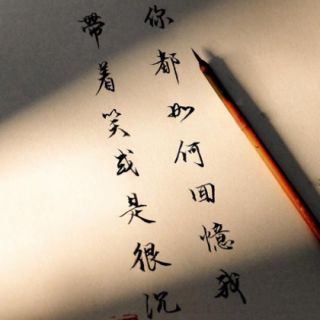 你都如何回憶我
帶着笑或是很沉